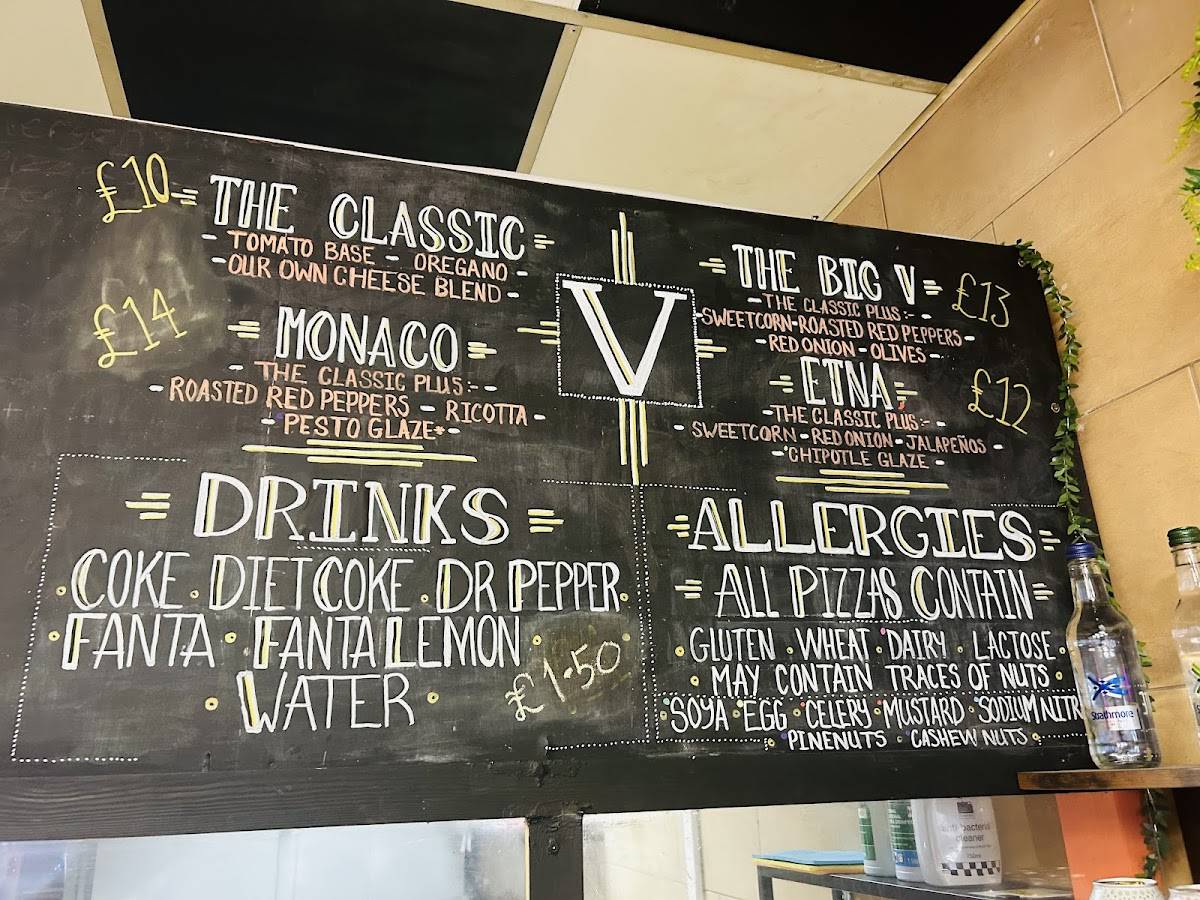 £10
THE CLASSIC
- TOMATO BASE - OREGANO -
- OUR OWN CHEESE BLEND -
£14
MONACO
- THE CLASSIC PLUS:-
- ROASTED RED PEPPERS - RICOTTA -
- PESTO GLAZE* -
V
THE BIG V
£13
- THE CLASSIC PLUS:- -
- SWEETCORN - ROASTED RED PEPPERS -
- RED ONION - OLIVES -
ETNA
£12
- THE CLASSIC PLUS:- -
- SWEETCORN - RED ONION - JALAPEÑOS -
- CHIPOTLE GLAZE -
DRINKS
COKE · DIET COKE · DR PEPPER ·
· FANTA · FANTA LEMON ·
· WATER ·
£1.50
ALLERGIES
ALL PIZZAS CONTAIN
· GLUTEN · WHEAT · DAIRY · LACTOSE ·
· MAY CONTAIN TRACES OF NUTS ·
· SOYA · EGG · CELERY · MUSTARD · SODIUM
· PINENUTS · CASHEW NUTS ·
Strathmore
anti-bacterial
cleaner